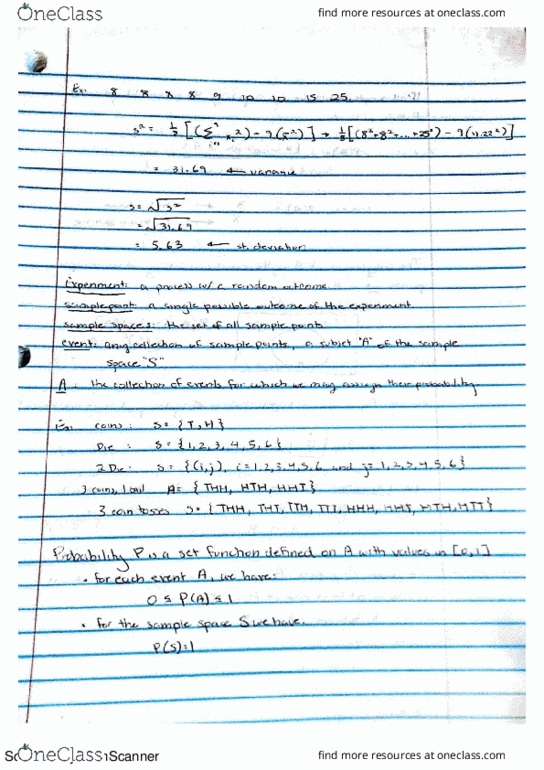 OneClass find more resources at oneclass.com
Ex: 8 8 8 8 9 10 10 15 25
s² = 1/8 [(Σ xᵢ²) - 9(x̄²)] → 1/8[(8²+8²+...+25²) - 9(11.22²)]
= 31.69 ← variance
s = √s²
= √31.69
= 5.63 ← st. deviation
Experiment: a process w/ a random outcome
sample point: a single possible outcome of the experiment
sample space S: the set of all sample points
event: any collection of sample points, a subset "A" of the sample
space "S"
A: the collection of events for which we may assign their probability
Ex: coins: S = {T, H}
Die: S = {1, 2, 3, 4, 5, 6}
2 Die: S = {(i,j), i = 1, 2, 3, 4, 5, 6 and j = 1, 2, 3, 4, 5, 6}
3 coins, 1 tail A = {THH, HTH, HHT}
3 coin tosses S = {THH, THT, TTH, TTT, HHH, HHT, HTH, HTT}
Probability P is a set function defined on A with values in [0,1]
• for each event A, we have:
0 ≤ P(A) ≤ 1
• For the sample space S we have
P(S) = 1
OneClass Scanner find more resources at oneclass.com